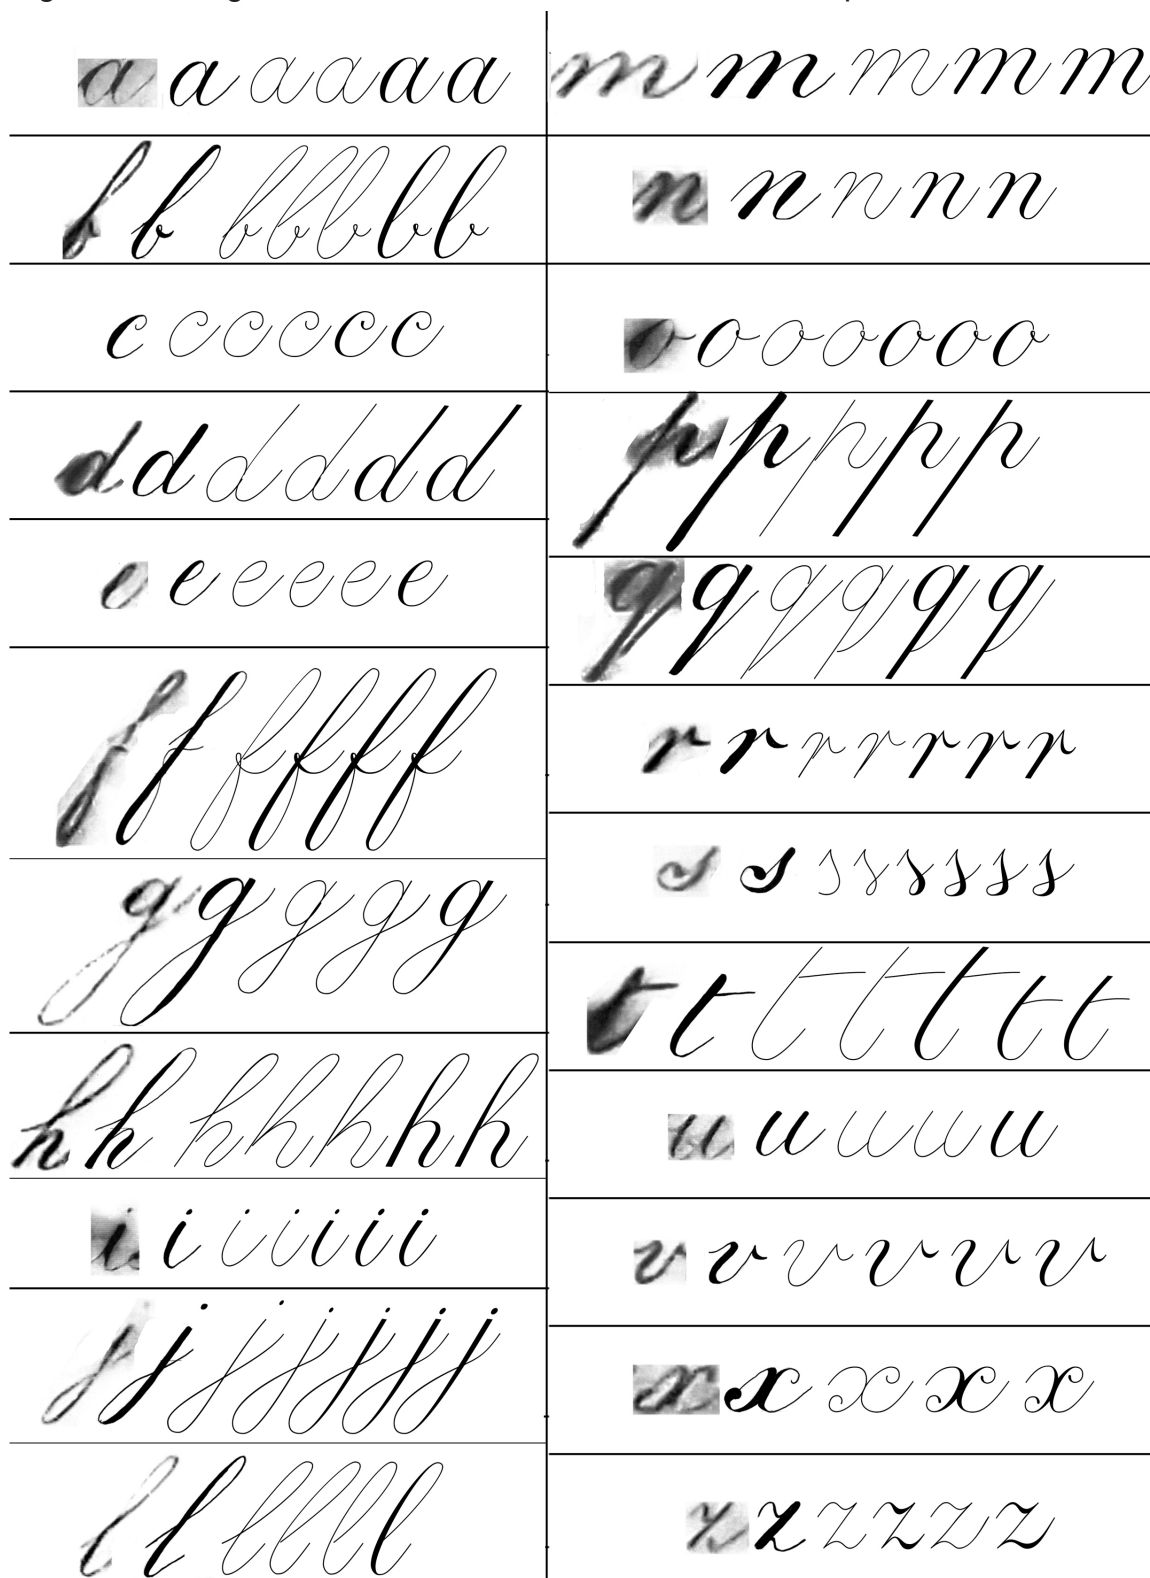 a a a a a a
b b b b b b b
c c c c c c
d d d d d d
e e e e e e
f f f f f f
g g g g g
h h h h h h h
i i i i i i i
j j j j j j j
l l l l l l
m m m m m
n n n n n
o o o o o o o
p p p p p
q q q q q q
r r r r r r r
s s s s s s s s
t t t t t t t
u u u u u
v v v v v v
x x x x x
z z z z z z